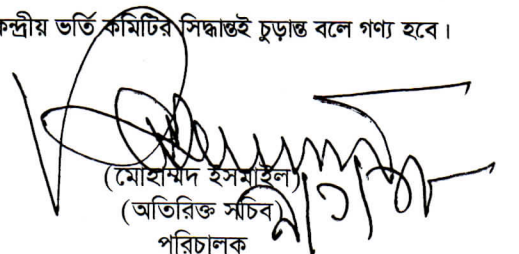 কেন্দ্রীয় ভর্তি কমিটির সিদ্ধান্তই চুড়ান্ত বলে গণ্য হবে।
(মোহাম্মদ ইসমাইল)
(অতিরিক্ত সচিব)
পরিচালক